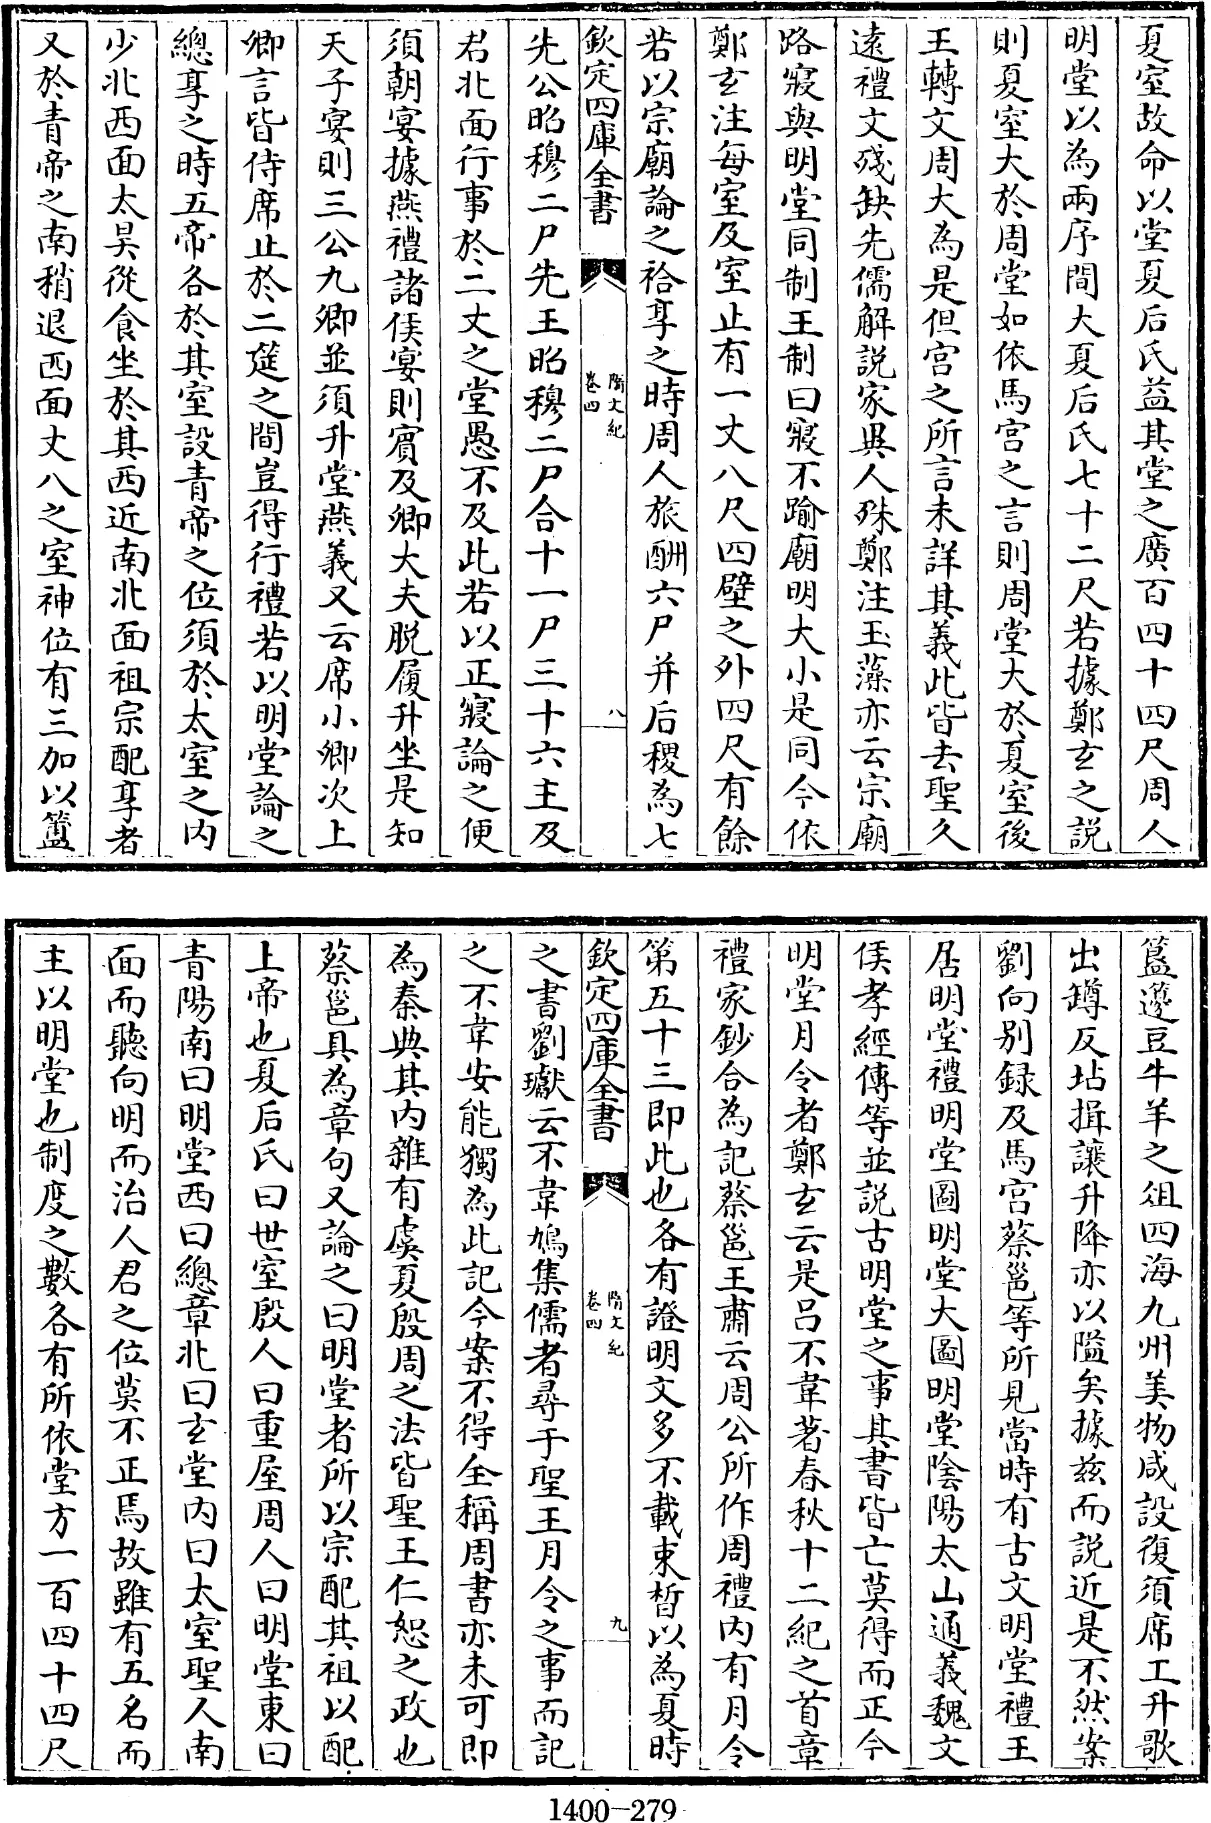 夏室故命以堂夏后氏益其堂之廣百四十四尺周人
明堂以為兩序間大夏后氏七十二尺若據鄭玄之説
則夏室大於周堂如依馬宫之言則周堂大於夏室後
王轉文周大為是但宫之所言未詳其義此皆去聖久
遠禮文殘缺先儒解説家異人殊鄭注玉藻亦云宗廟
路寢與明堂同制王制曰寢不踰廟明大小是同今依
鄭玄注每室及室止有一丈八尺四壁之外四尺有餘
若以宗廟論之祫享之時周人旅酬六尸并后稷為七
欽定四庫全書
隋文紀
卷四
八
先公昭穆二尸先王昭穆二尸合十一尸三十六主及
君北面行事於二丈之堂愚不及此若以正寢論之便
須朝宴據燕禮諸侯宴則賓及卿大夫脱履升坐是知
天子宴則三公九卿並須升堂燕義又云席小卿次上
卿言皆侍席止於二筵之間豈得行禮若以明堂論之
總享之時五帝各於其室設青帝之位須於太室之内
少北西面太昊從食坐於其西近南北面祖宗配享者
又於青帝之南稍退西面丈八之室神位有三加以簠
簋籩豆牛羊之俎四海九州美物咸設復須席工升歌
出罇反坫揖讓升降亦以隘矣據兹而説近是不然案
劉向别録及馬宫蔡邕等所見當時有古文明堂禮王
居明堂禮明堂圖明堂大圖明堂陰陽太山通義魏文
侯孝經傳等並説古明堂之事其書皆亡莫得而正今
明堂月令者鄭玄云是吕不韋著春秋十二紀之首章
禮家鈔合為記蔡邕王肅云周公所作周禮内有月令
第五十三即此也各有證明文多不載束晳以為夏時
欽定四庫全書
隋文紀
卷四
九
之書劉瓛云不韋鳩集儒者尋于聖王月令之事而記
之不韋安能獨為此記今案不得全稱周書亦未可即
為秦典其内雜有虞夏殷周之法皆聖王仁恕之政也
蔡邕具為章句又論之曰明堂者所以宗配其祖以配
上帝也夏后氏曰世室殷人曰重屋周人曰明堂東曰
青陽南曰明堂西曰總章北曰玄堂内曰太室聖人南
面而聽向明而治人君之位莫不正焉故雖有五名而
主以明堂也制度之數各有所依堂方一百四十四尺
1400-279